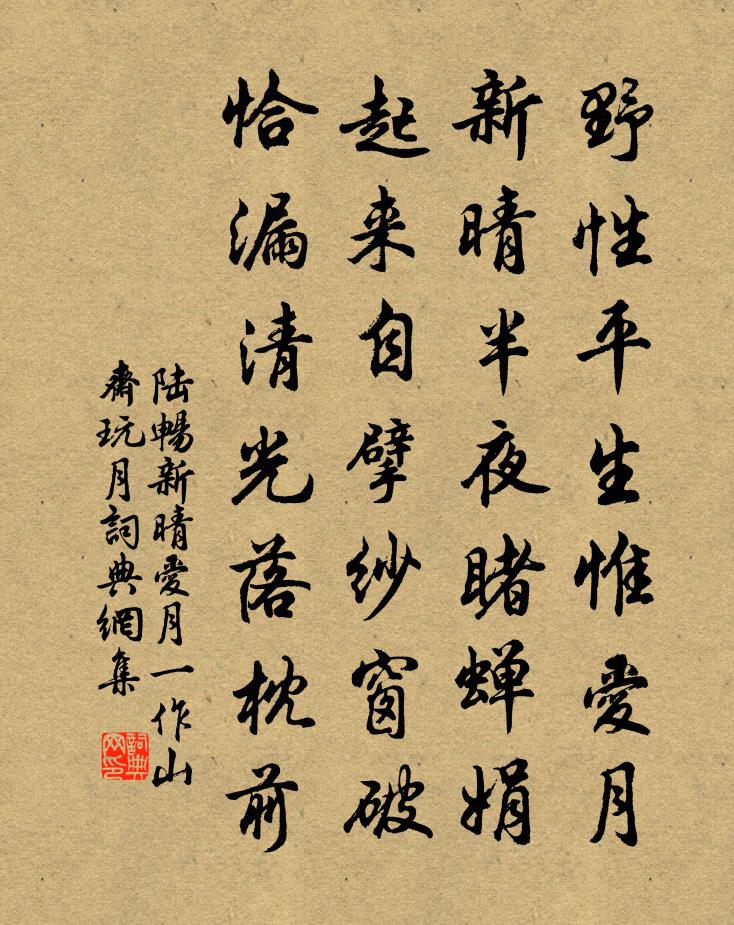 野性平生惟愛月
新晴半夜睹蟬娟
起来自擘紗窗破
恰漏清光落枕前
陸暢新晴愛月一作山
齋玩月詞典網集
詞典
网印